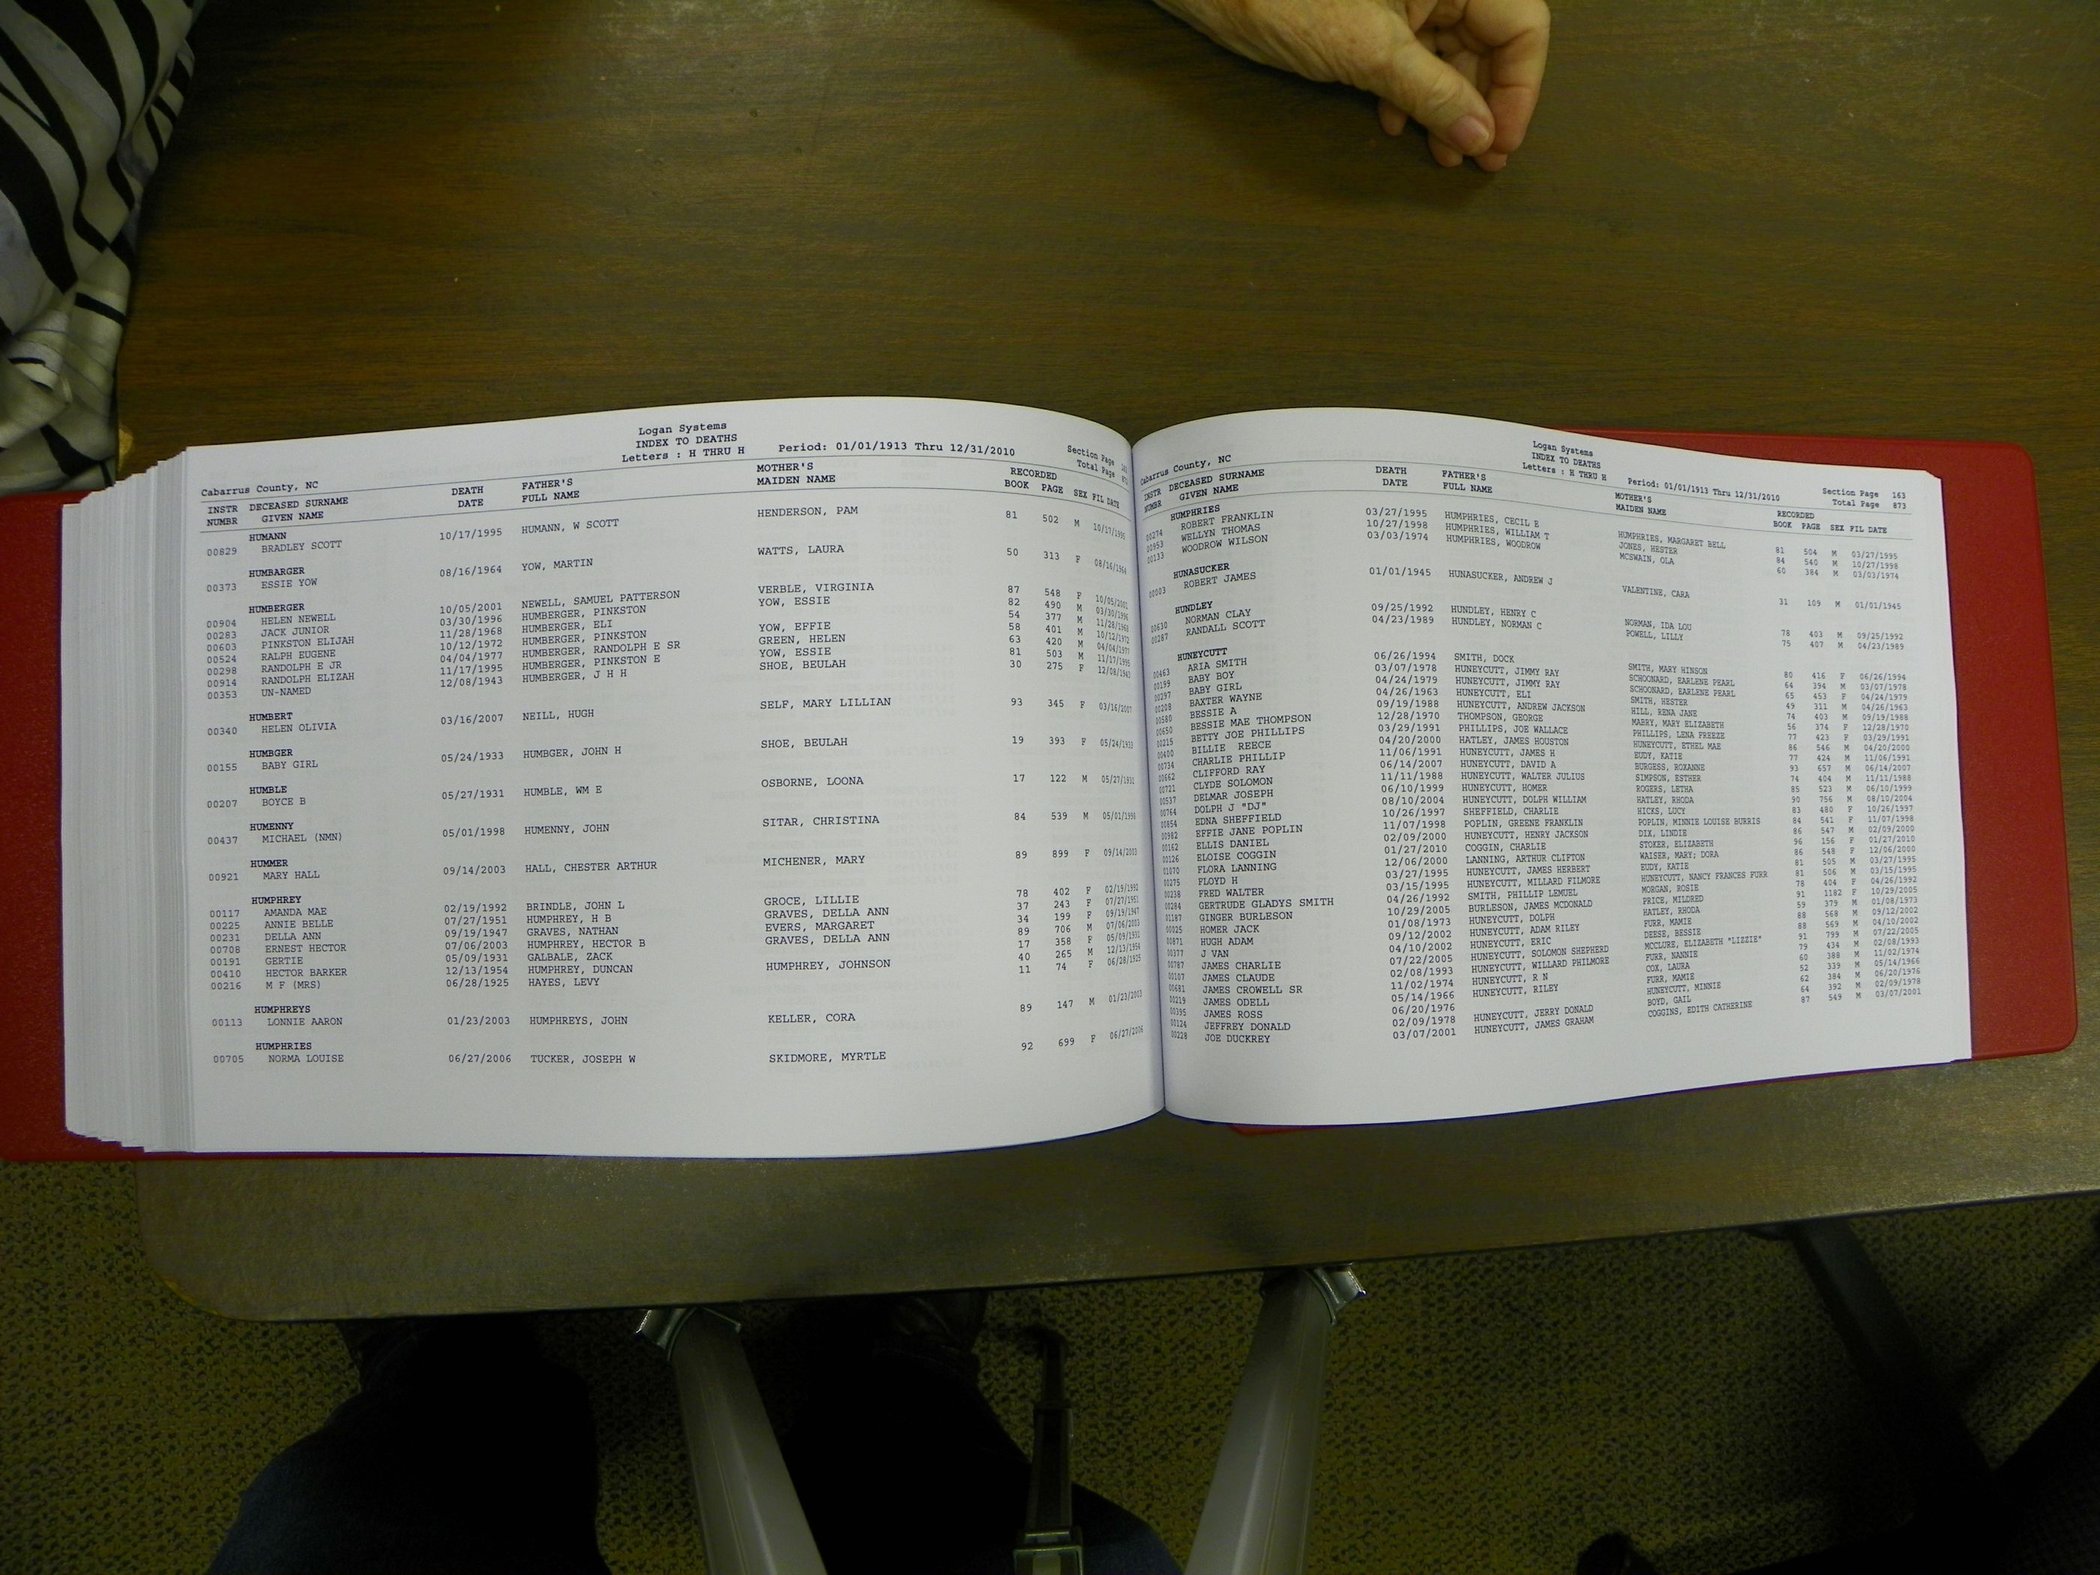 Logan Systems
INDEX TO DEATHS
Letters : H THRU H Period: 01/01/1913 Thru 12/31/2010
Cabarrus County, NC Section Page
Total Page
INSTR DECEASED SURNAME DEATH FATHER'S MOTHER'S RECORDED
NUMBR GIVEN NAME DATE FULL NAME MAIDEN NAME BOOK PAGE SEX FIL DATE
HUMANN
00829 BRADLEY SCOTT 10/17/1995 HUMANN, W SCOTT HENDERSON, PAM 81 502 M 10/17/1995
HUMBARGER
00373 ESSIE YOW 08/16/1964 YOW, MARTIN WATTS, LAURA 50 313 F 08/16/1964
HUMBERGER
00904 HELEN NEWELL 10/05/2001 NEWELL, SAMUEL PATTERSON VERBLE, VIRGINIA 87 548 F 10/05/2001
00283 JACK JUNIOR 03/30/1996 HUMBERGER, PINKSTON YOW, ESSIE 82 490 M 03/30/1996
00603 PINKSTON ELIJAH 11/28/1968 HUMBERGER, ELI 54 377 M 11/28/1968
00524 RALPH EUGENE 10/12/1972 HUMBERGER, PINKSTON YOW, EFFIE 58 401 M 10/12/1972
00298 RANDOLPH E JR 04/04/1977 HUMBERGER, RANDOLPH E SR GREEN, HELEN 63 420 M 04/04/1977
00914 RANDOLPH ELIZAH 11/17/1995 HUMBERGER, PINKSTON E YOW, ESSIE 81 503 M 11/17/1995
00353 UN-NAMED 12/08/1943 HUMBERGER, J H H SHOE, BEULAH 30 275 F 12/08/1943
HUMBERT
00340 HELEN OLIVIA 03/16/2007 NEILL, HUGH SELF, MARY LILLIAN 93 345 F 03/16/2007
HUMBGER
00155 BABY GIRL 05/24/1933 HUMBGER, JOHN H SHOE, BEULAH 19 393 F 05/24/1933
HUMBLE
00207 BOYCE B 05/27/1931 HUMBLE, WM E OSBORNE, LOONA 17 122 M 05/27/1931
HUMENNY
00437 MICHAEL (NMN) 05/01/1998 HUMENNY, JOHN SITAR, CHRISTINA 84 539 M 05/01/1998
HUMMER
00921 MARY HALL 09/14/2003 HALL, CHESTER ARTHUR MICHENER, MARY 89 899 F 09/14/2003
HUMPHREY
00117 AMANDA MAE 02/19/1992 BRINDLE, JOHN L GROCE, LILLIE 78 402 F 02/19/1992
00225 ANNIE BELLE 07/27/1951 HUMPHREY, H B GRAVES, DELLA ANN 37 243 F 07/27/1951
00231 DELLA ANN 09/19/1947 GRAVES, NATHAN EVERS, MARGARET 34 199 F 09/19/1947
00708 ERNEST HECTOR 07/06/2003 HUMPHREY, HECTOR B GRAVES, DELLA ANN 89 706 M 07/06/2003
00191 GERTIE 05/09/1931 GALBALE, ZACK 17 358 F 05/09/1931
00410 HECTOR BARKER 12/13/1954 HUMPHREY, DUNCAN HUMPHREY, JOHNSON 40 265 M 12/13/1954
00216 M F (MRS) 06/28/1925 HAYES, LEVY 11 74 F 06/28/1925
HUMPHREYS
00113 LONNIE AARON 01/23/2003 HUMPHREYS, JOHN KELLER, CORA 89 147 M 01/23/2003
HUMPHRIES
00705 NORMA LOUISE 06/27/2006 TUCKER, JOSEPH W SKIDMORE, MYRTLE 92 699 F 06/27/2006
Logan Systems
INDEX TO DEATHS
Letters : H THRU H Period: 01/01/1913 Thru 12/31/2010
Cabarrus County, NC Section Page 163
Total Page 873
INSTR DECEASED SURNAME DEATH FATHER'S MOTHER'S RECORDED
NUMBR GIVEN NAME DATE FULL NAME MAIDEN NAME BOOK PAGE SEX FIL DATE
HUMPHRIES
00274 ROBERT FRANKLIN 03/27/1995 HUMPHRIES, CECIL E HUMPHRIES, MARGARET BELL 81 504 M 03/27/1995
00953 WELLYN THOMAS 10/27/1998 HUMPHRIES, WILLIAM T JONES, HESTER 84 540 M 10/27/1998
00133 WOODROW WILSON 03/03/1974 HUMPHRIES, WOODROW MCSWAIN, OLA 60 384 M 03/03/1974
HUNASUCKER
00003 ROBERT JAMES 01/01/1945 HUNASUCKER, ANDREW J VALENTINE, CARA 31 109 M 01/01/1945
HUNDLEY
00630 NORMAN CLAY 09/25/1992 HUNDLEY, HENRY C NORMAN, IDA LOU 78 403 M 09/25/1992
00287 RANDALL SCOTT 04/23/1989 HUNDLEY, NORMAN C POWELL, LILLY 75 407 M 04/23/1989
HUNEYCUTT
00463 ARIA SMITH 06/26/1994 SMITH, DOCK SMITH, MARY HINSON 80 416 F 06/26/1994
00199 BABY BOY 03/07/1978 HUNEYCUTT, JIMMY RAY SCHOONARD, EARLENE PEARL 64 394 M 03/07/1978
00297 BABY GIRL 04/24/1979 HUNEYCUTT, JIMMY RAY SCHOONARD, EARLENE PEARL 65 453 F 04/24/1979
00208 BAXTER WAYNE 04/26/1963 HUNEYCUTT, ELI SMITH, HESTER 49 311 M 04/26/1963
00580 BESSIE A 09/19/1988 HUNEYCUTT, ANDREW JACKSON HILL, RENA JANE 74 403 M 09/19/1988
00650 BESSIE MAE THOMPSON 12/28/1970 THOMPSON, GEORGE MABRY, MARY ELIZABETH 56 374 F 12/28/1970
00215 BETTY JOE PHILLIPS 03/29/1991 PHILLIPS, JOE WALLACE PHILLIPS, LENA FREEZE 77 423 F 03/29/1991
00400 BILLIE REECE 04/20/2000 HATLEY, JAMES HOUSTON HUNEYCUTT, ETHEL MAE 86 546 M 04/20/2000
00734 CHARLIE PHILLIP 11/06/1991 HUNEYCUTT, JAMES H EUDY, KATIE 77 424 M 11/06/1991
00662 CLIFFORD RAY 06/14/2007 HUNEYCUTT, DAVID A BURGESS, ROXANNE 93 657 M 06/14/2007
00721 CLYDE SOLOMON 11/11/1988 HUNEYCUTT, WALTER JULIUS SIMPSON, ESTHER 74 404 M 11/11/1988
00537 DELMAR JOSEPH 06/10/1999 HUNEYCUTT, HOMER ROGERS, LETHA 85 523 M 06/10/1999
00764 DOLPH J "DJ" 08/10/2004 HUNEYCUTT, DOLPH WILLIAM HATLEY, RHODA 90 756 M 08/10/2004
00854 EDNA SHEFFIELD 10/26/1997 SHEFFIELD, CHARLIE HICKS, LUCY 83 480 F 10/26/1997
00982 EFFIE JANE POPLIN 11/07/1998 POPLIN, GREENE FRANKLIN POPLIN, MINNIE LOUISE BURRIS 84 541 F 11/07/1998
00162 ELLIS DANIEL 02/09/2000 HUNEYCUTT, HENRY JACKSON DIX, LINDIE 86 547 M 02/09/2000
00126 ELOISE COGGIN 01/27/2010 COGGIN, CHARLIE STOKER, ELIZABETH 96 156 F 01/27/2010
01070 FLORA LANNING 12/06/2000 LANNING, ARTHUR CLIFTON WAISER, MARY; DORA 86 548 F 12/06/2000
00275 FLOYD H 03/27/1995 HUNEYCUTT, JAMES HERBERT EUDY, KATIE 81 505 M 03/27/1995
00238 FRED WALTER 03/15/1995 HUNEYCUTT, MILLARD FILMORE HUNEYCUTT, NANCY FRANCES FURR 81 506 M 03/15/1995
00284 GERTRUDE GLADYS SMITH 04/26/1992 SMITH, PHILLIP LEMUEL MORGAN, ROSIE 78 404 F 04/26/1992
01187 GINGER BURLESON 10/29/2005 BURLESON, JAMES MCDONALD PRICE, MILDRED 91 1182 F 10/29/2005
00025 HOMER JACK 01/08/1973 HUNEYCUTT, DOLPH HATLEY, RHODA 59 379 M 01/08/1973
00871 HUGH ADAM 09/12/2002 HUNEYCUTT, ADAM RILEY FURR, MAMIE 88 568 M 09/12/2002
00377 J VAN 04/10/2002 HUNEYCUTT, ERIC DEESE, BESSIE 88 569 M 04/10/2002
00787 JAMES CHARLIE 07/22/2005 HUNEYCUTT, SOLOMON SHEPHERD MCCLURE, ELIZABETH "LIZZIE" 91 799 M 07/22/2005
00107 JAMES CLAUDE 02/08/1993 HUNEYCUTT, WILLARD PHILMORE FURR, NANNIE 79 434 M 02/08/1993
00681 JAMES CROWELL SR 11/02/1974 HUNEYCUTT, R N COX, LAURA 60 388 M 11/02/1974
00219 JAMES ODELL 05/14/1966 HUNEYCUTT, RILEY FURR, MAMIE 52 339 M 05/14/1966
00395 JAMES ROSS 06/20/1976 HUNEYCUTT, MINNIE 62 384 M 06/20/1976
00124 JEFFREY DONALD 02/09/1978 HUNEYCUTT, JERRY DONALD BOYD, GAIL 64 392 M 02/09/1978
00228 JOE DUCKREY 03/07/2001 HUNEYCUTT, JAMES GRAHAM COGGINS, EDITH CATHERINE 87 549 M 03/07/2001